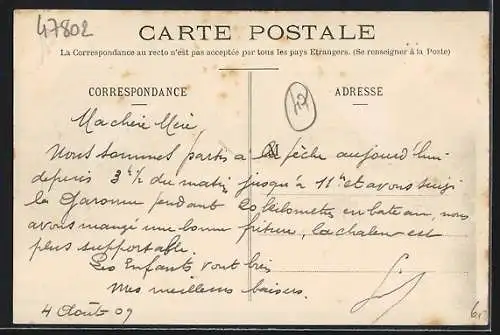 47802
CARTE POSTALE
La Correspondance au recto n'est pas acceptée par tous les pays Etrangers. (Se renseigner à la Poste)
CORRESPONDANCE
ADRESSE
Ma chère Mère
Nous sommes partis a la pêche aujourd'hui
depuis 3h ½ du matin jusqu'à 11h et avons suivi
la Garonne pendant 20 kilometres en bateau, nous
avons mangé une bonne friture, la chaleur est
plus supportable.
Les Enfants vont bien
Mes meilleurs baisers.
4 Août 09